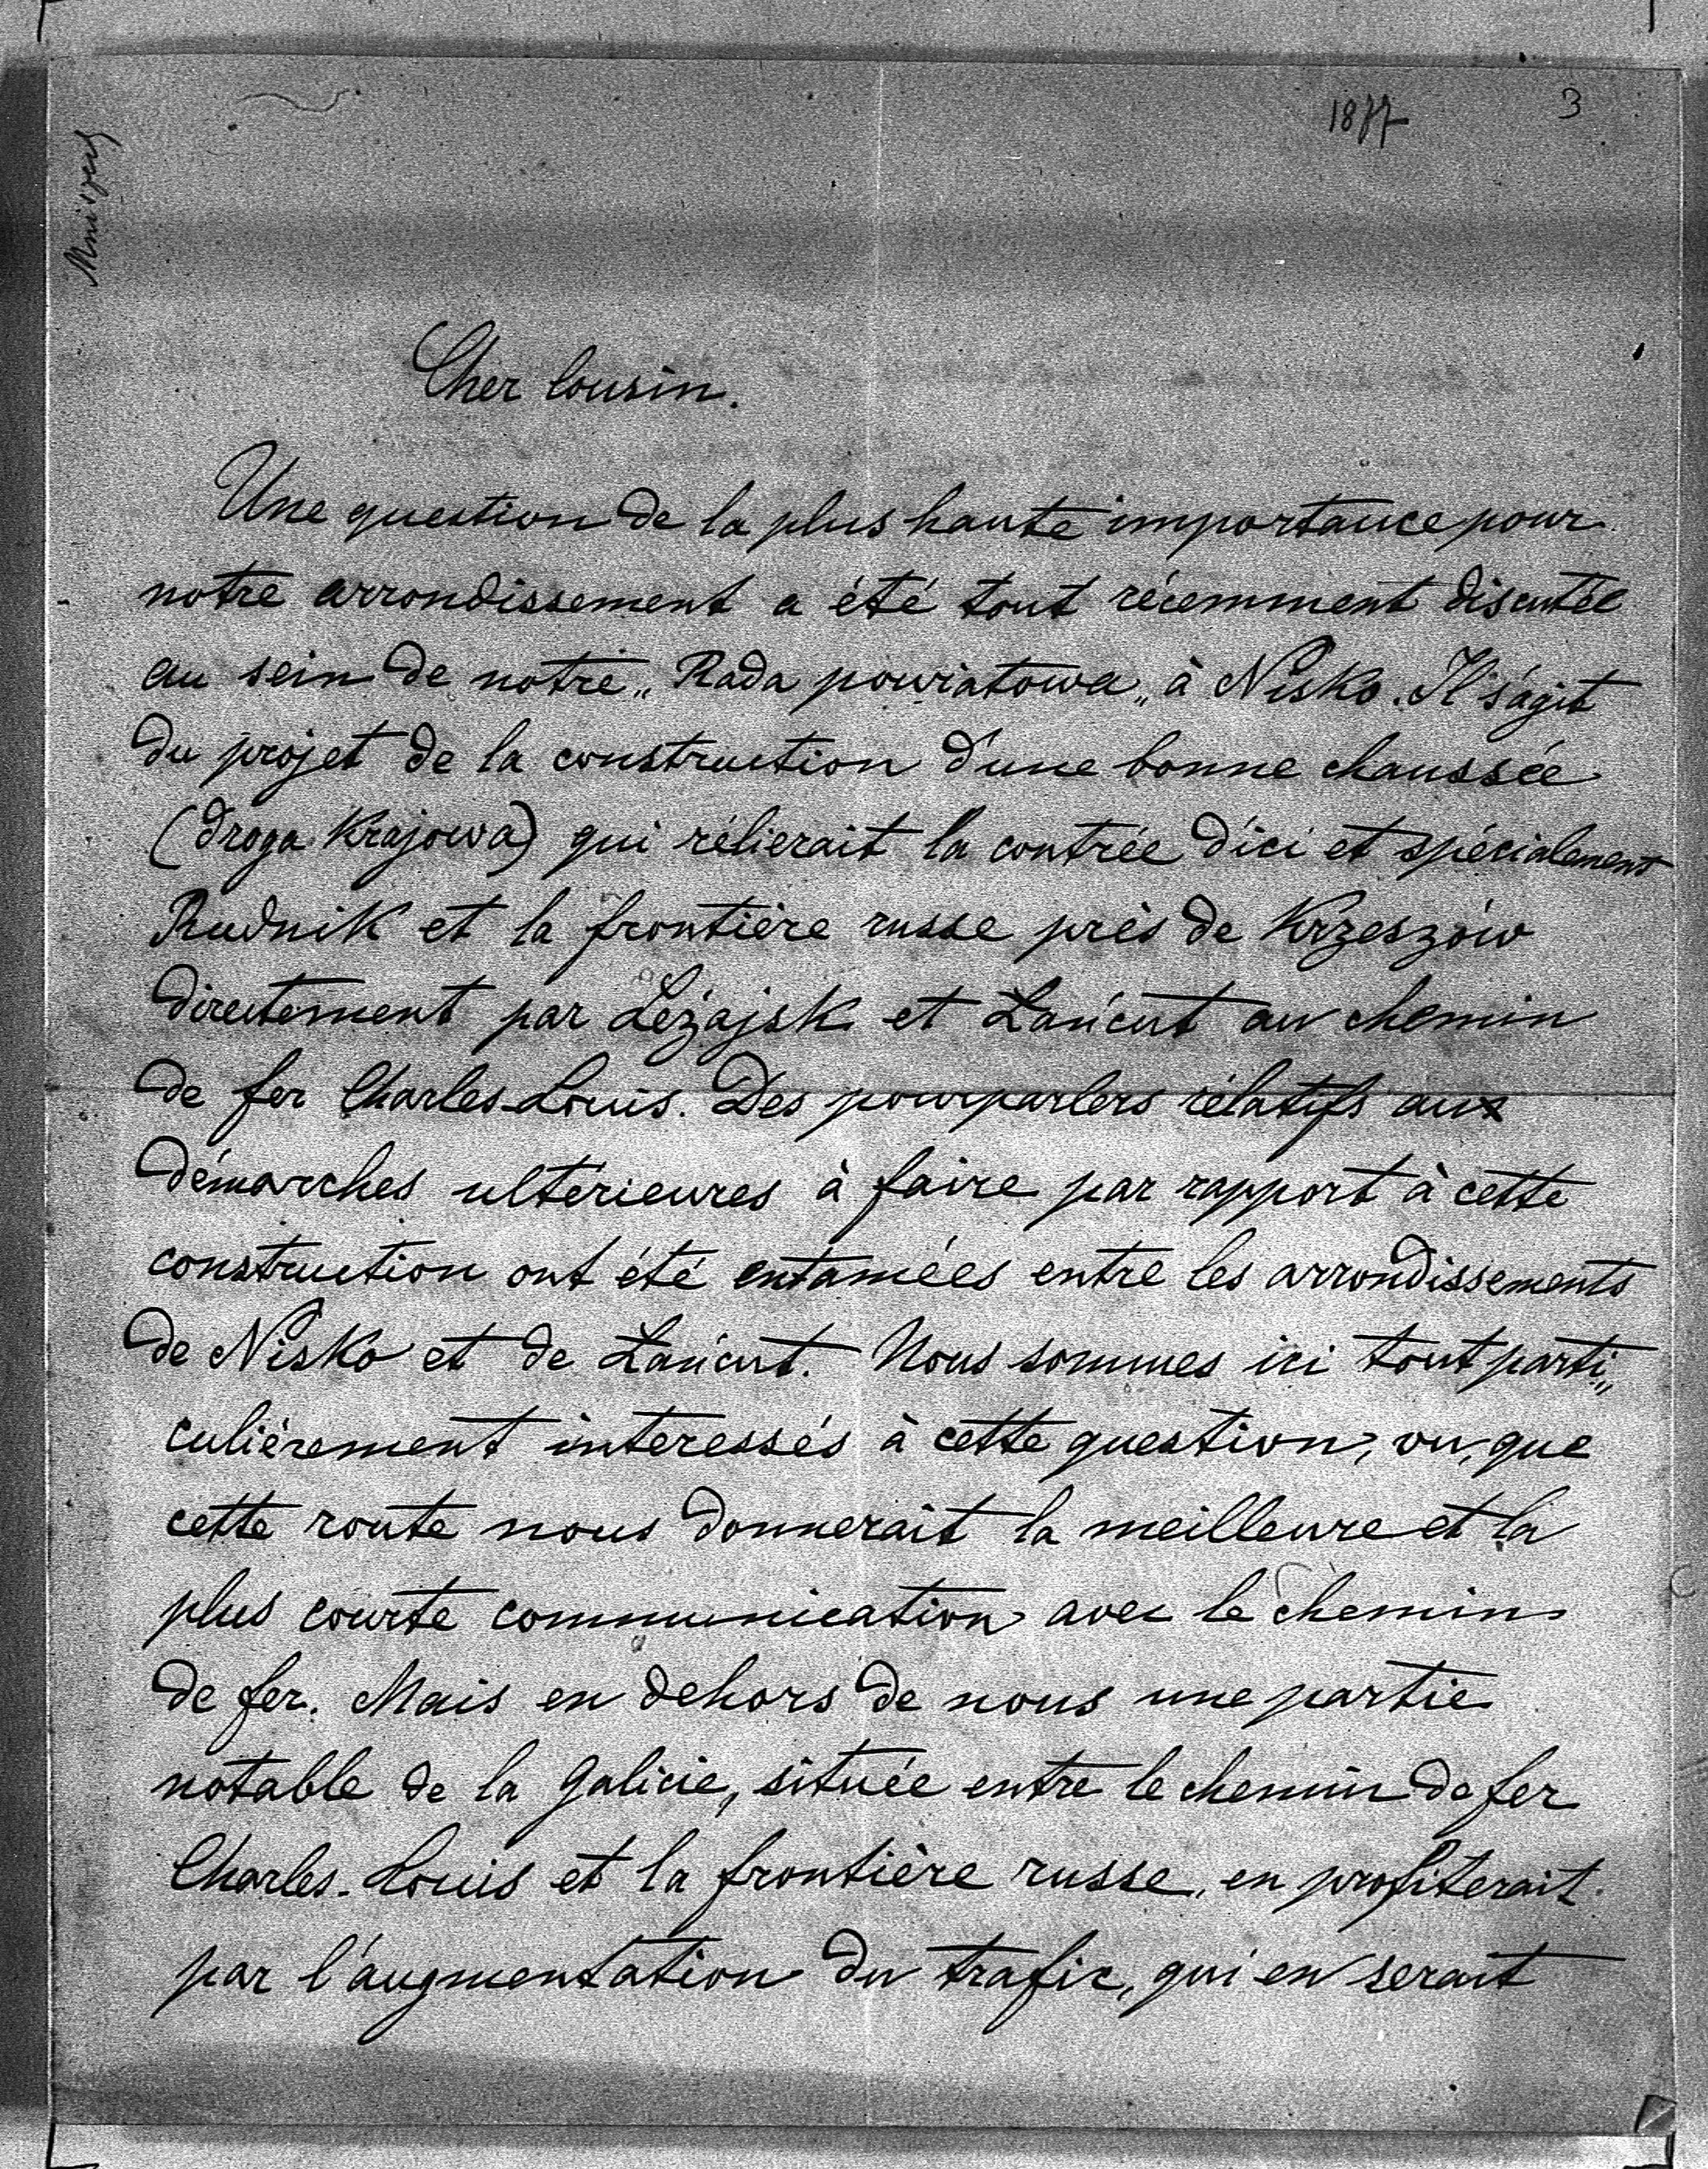 1877 3
Cher Cousin.
Une question de la plus haute importance pour
notre arrondissement a été tout récemment discutée
au sein de notre „Rada powiatowa„ à Nisko. Il s'ágit
du projet de la construction d'une bonne chaussée
(droga Krajowa) qui rélierait la contrée d'ici et spécialement
Rudnik et la frontière russe près de Krzeszów
directement par Leżajsk et Łańcut au chemin
de fer Charles-Louis. Des pourparlers rélatifs aux
démarches ultérieures à faire par rapport à cette
construction ont été entamées entre les arrondissements
de Nisko et de Łańcut. Nous sommes ici tout parti„
culièrement intéressés à cette question, vu, que
cette route nous donnerait la meilleure et la
plus courte communication avec le chemin
de fer. Mais en dehors de nous une partie
notable de la Galicie, située entre le chemin de fer
Charles-Louis et la frontière russe, en profiterait
par l'augmentation du trafic, qui en serait